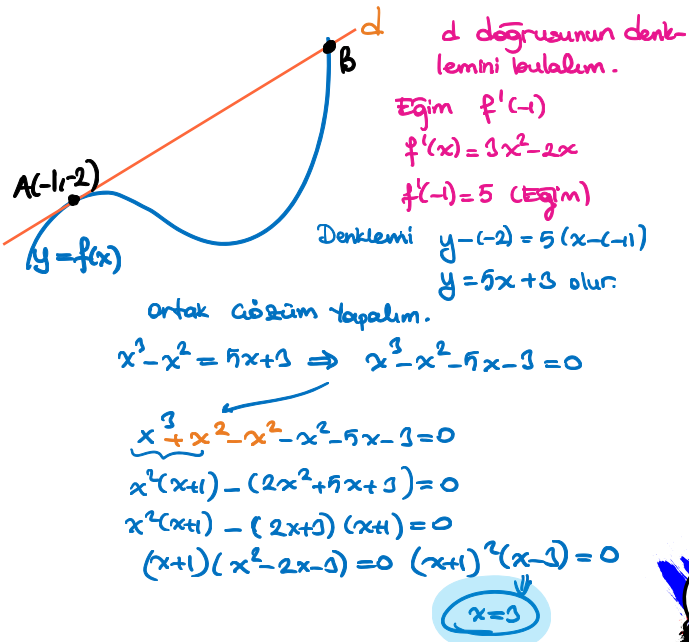 d
B
A(-1,-2)
y=f(x)
d doğrusunun denk-
lemini bulalım.
Eğim f'(-1)
f'(x)=3x²-2x
f'(-1)=5 (Eğim)
Denklemi y-(-2)=5(x-(-1)
y=5x+3 olur.
Ortak çözüm Yapalım.
x³-x²=5x+3 ⇒ x³-x²-5x-3=0
x³+x²-x²-x²-5x-3=0
x²(x+1)-(2x²+5x+3)=0
x²(x+1)-(2x+3)(x+1)=0
(x+1)(x²-2x-3)=0 (x+1)²(x-3)=0
x=3